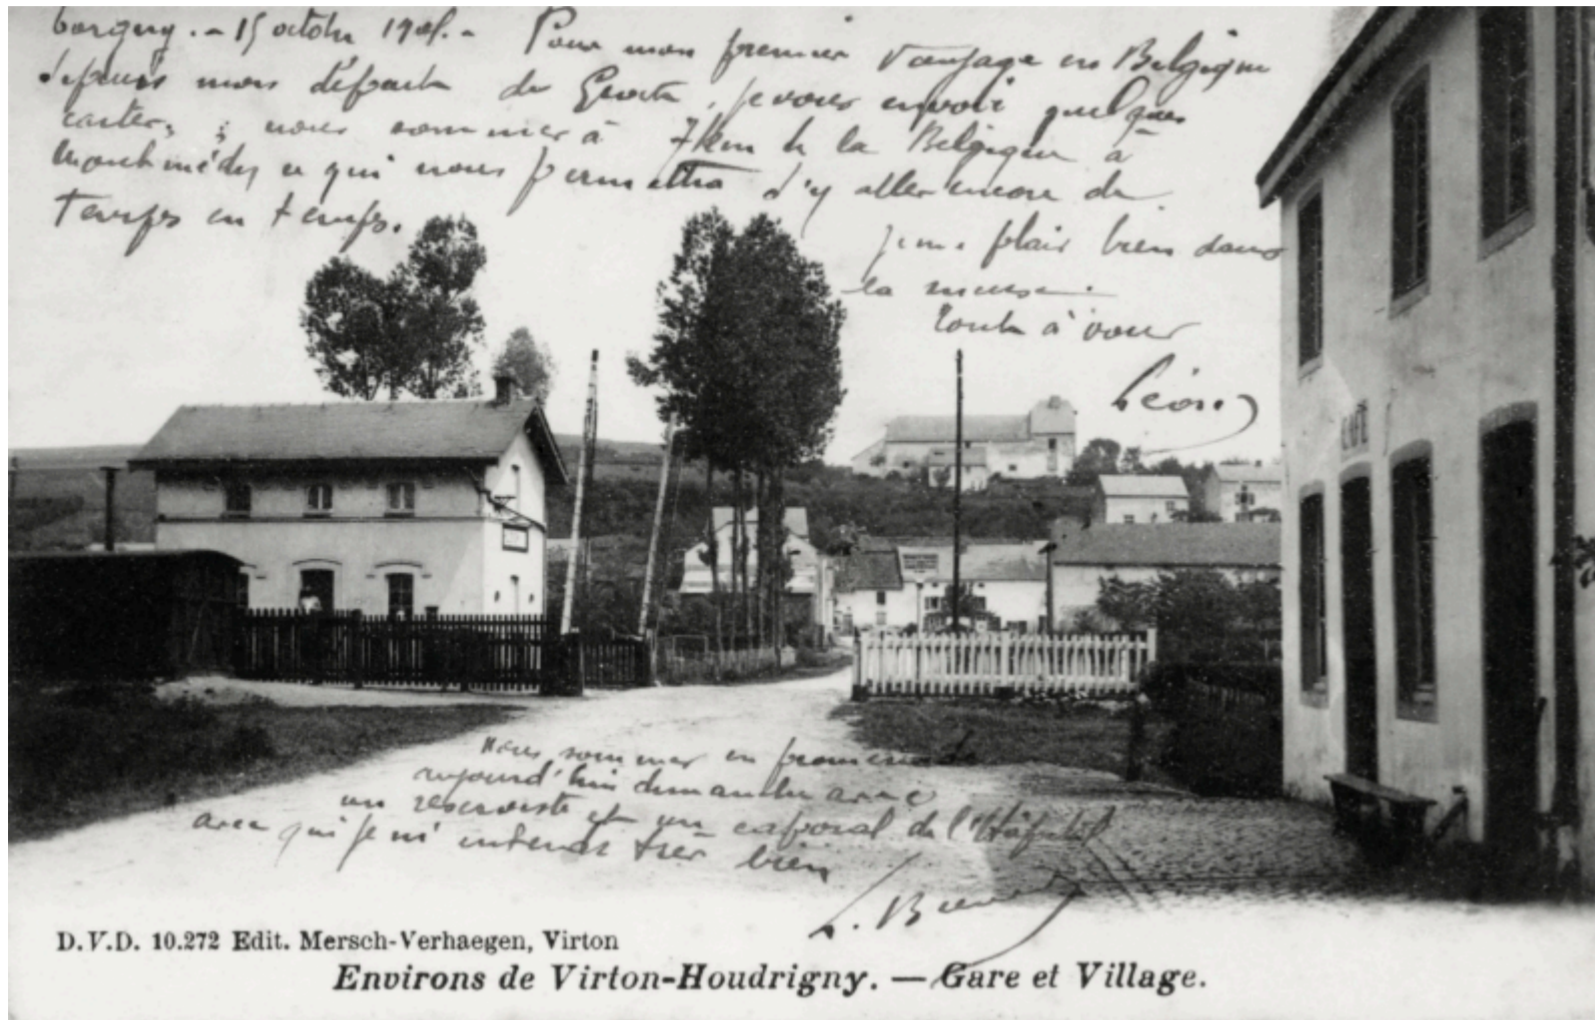 Torgny. - 15 octobre 190 . - Pour mon premier voyage en Belgique
depuis mon départ de , je vous envoie quelques
cartes, ; nous sommes à 7 km de la Belgique à
Montmédy ce qui nous permettra d'y aller encore de
temps en temps.
je me plais bien dans
la meuse.
Tout à vous
Léon
CAFÉ
Nous sommes en promenade
aujourd'hui dimanche avec
un réserviste et un caporal de l'Hôpital
avec qui je m'entends très bien
L.
D.V.D. 10.272 Edit. Mersch-Verhaegen, Virton
Environs de Virton-Houdrigny. — Gare et Village.